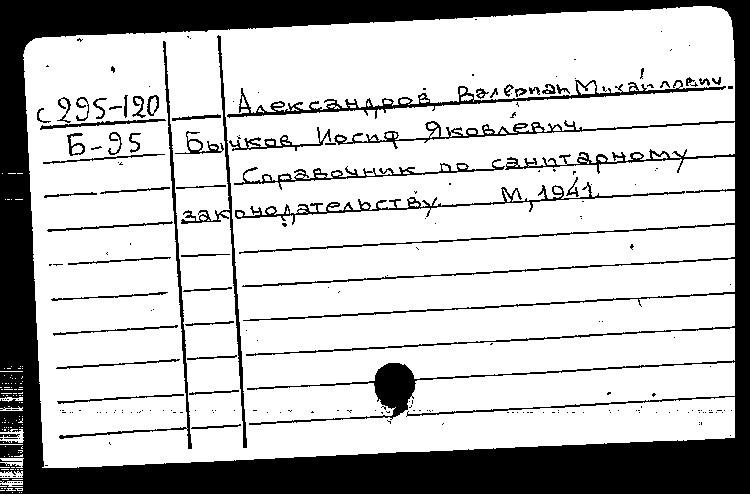 с 295-120 Александров, Валериан Михайлович.
Б-95 Бычков, Иосиф Яковлевич.
Справочник по санитарному
законодательству. М., 1941.